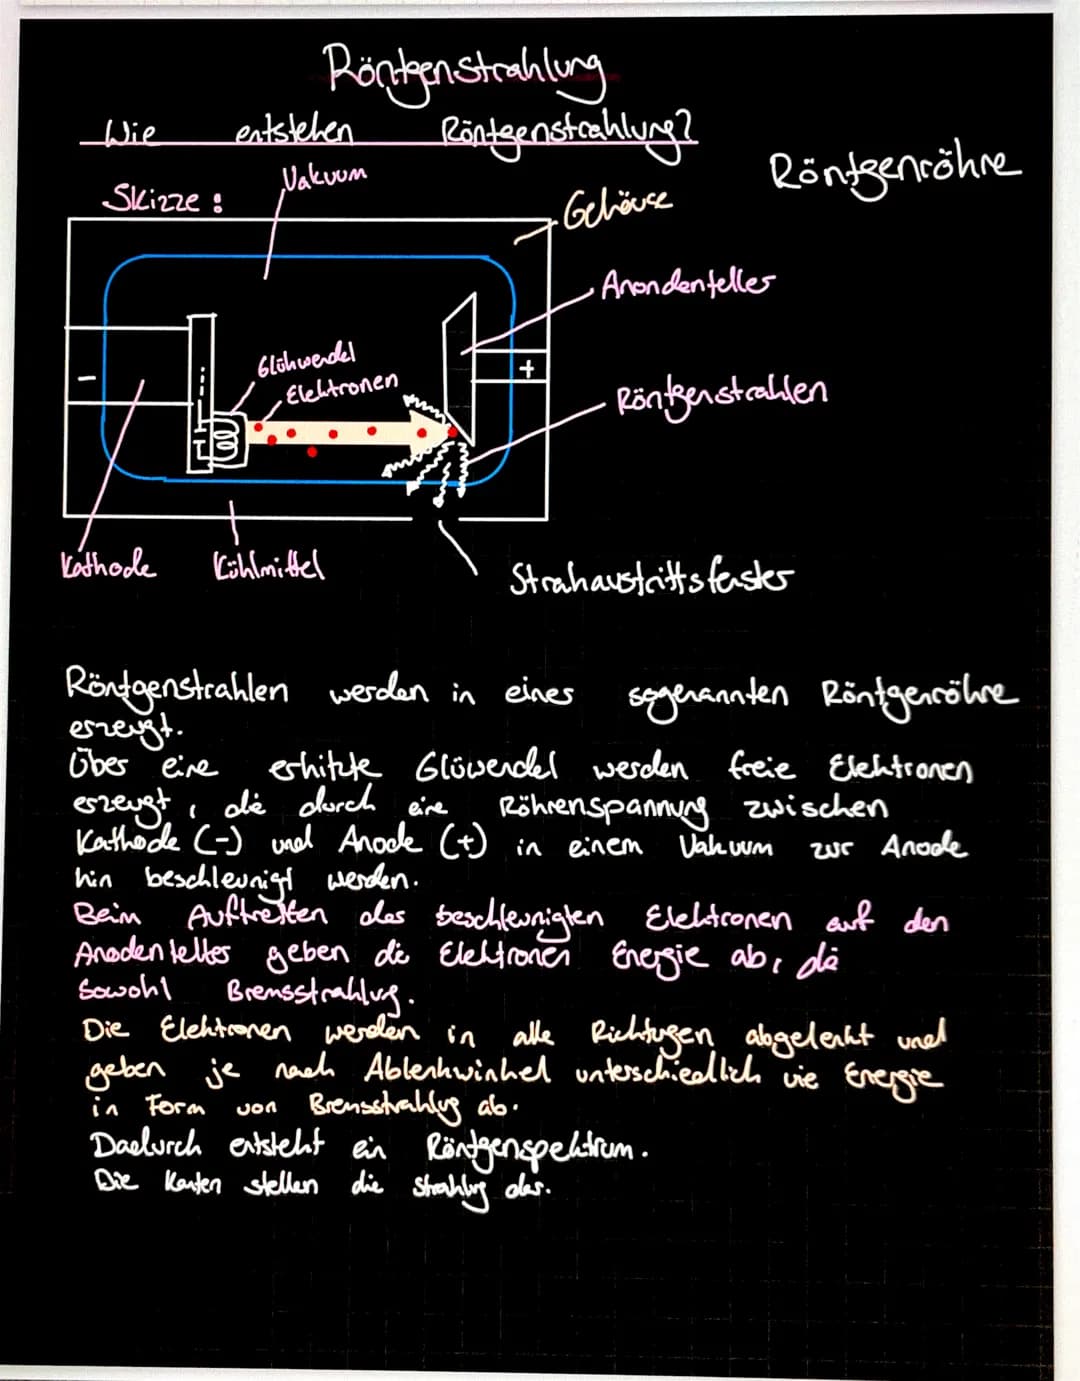 Röntgenstrahlung
Wie entstehen Röntgenstrahlung?
Röntgenröhre
Skizze:
Vakuum
Gehäuse
Anondenteller
Glühwendel
Elektronen
-
+
Röntgenstrahlen
Kathode
Kühlmittel
Strahaustrittsfenster
Röntgenstrahlen werden in eines sogenannten Röntgenröhre
erzeugt.
Über eine erhitzte Glüwendel werden freie Elektronen
erzeugt, die durch eine Röhrenspannung zwischen
Kathode (-) und Anode (+) in einem Vakuum zur Anode
hin beschleunigt werden.
Beim Auftretten des beschleunigten Elektronen auf den
Anodenteller geben die Elektronen Energie ab, die
sowohl Bremsstrahlug.
Die Elektronen werden in alle Richtugen abgelenkt und
geben je nach Ablenkwinkel unterschiedlich vie Energie
in Form von Bremsstrahlug ab.
Dadurch entsteht ein Röntgenspektrum.
Die Kanten stellen die Strahlug dar.